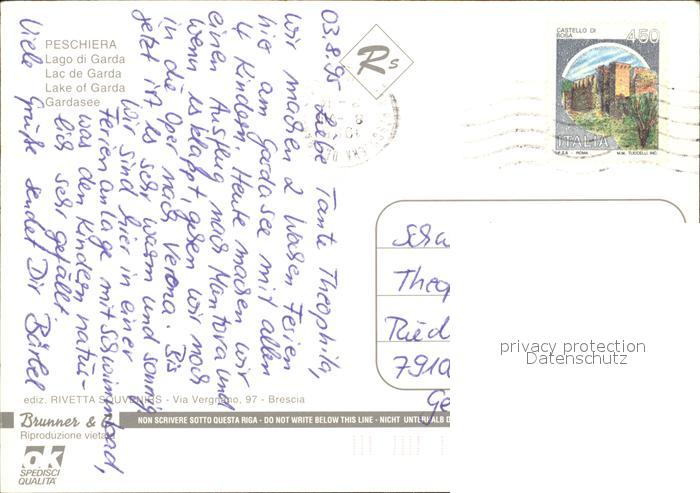 PESCHIERA
Lago di Garda
Lac de Garda
Lake of Garda
Gardasee
Rs
CASTELLO DI
ROSA
450
ITALIA
I.P.Z.S. - ROMA
M.M. TUCCELLI INC.
03.8.95 Liebe Tante Theophila,
wir machen 2 Wochen Ferien
hier am Gardasee mit allen
4 Kindern. Heute machen wir
einen Ausflug nach Mantova und
wenn es klappt, gehen wir noch
in die Oper nach Verona. Bis
jetzt ist es sehr warm und sonnig
Wir sind hier in einer
Ferienanlage mit Schwimmbad,
was den Kindern natür-
lich sehr gefällt.
Viele Grüße sendet Dir Bärbel
Scha
Theo
Ried
791
Ge
privacy protection
Datenschutz
ediz. RIVETTA SOUVENIRS - Via Vergnano, 97 - Brescia
Brunner & C
NON SCRIVERE SOTTO QUESTA RIGA - DO NOT WRITE BELOW THIS LINE - NICHT UNTERHALB D
Riproduzione vietata
ok
SPEDISCI
QUALITÀ